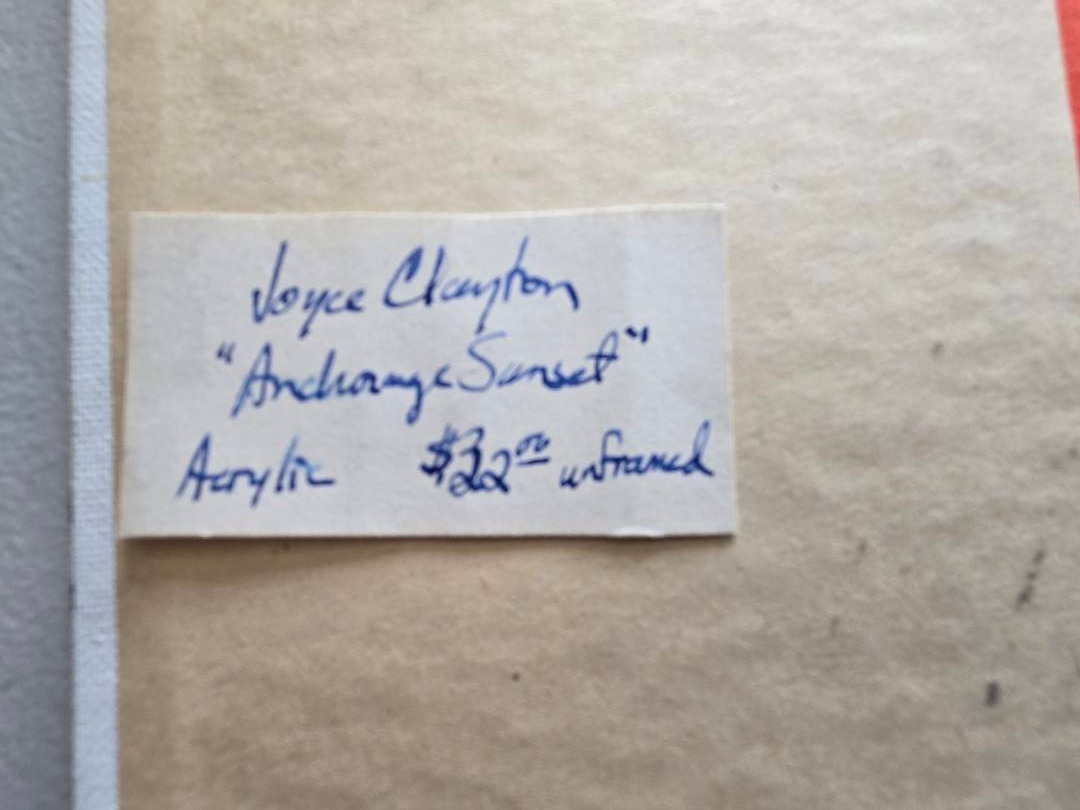 Joyce Clayton
"Anchorage Sunset"
Acrylic $32.00 unframed